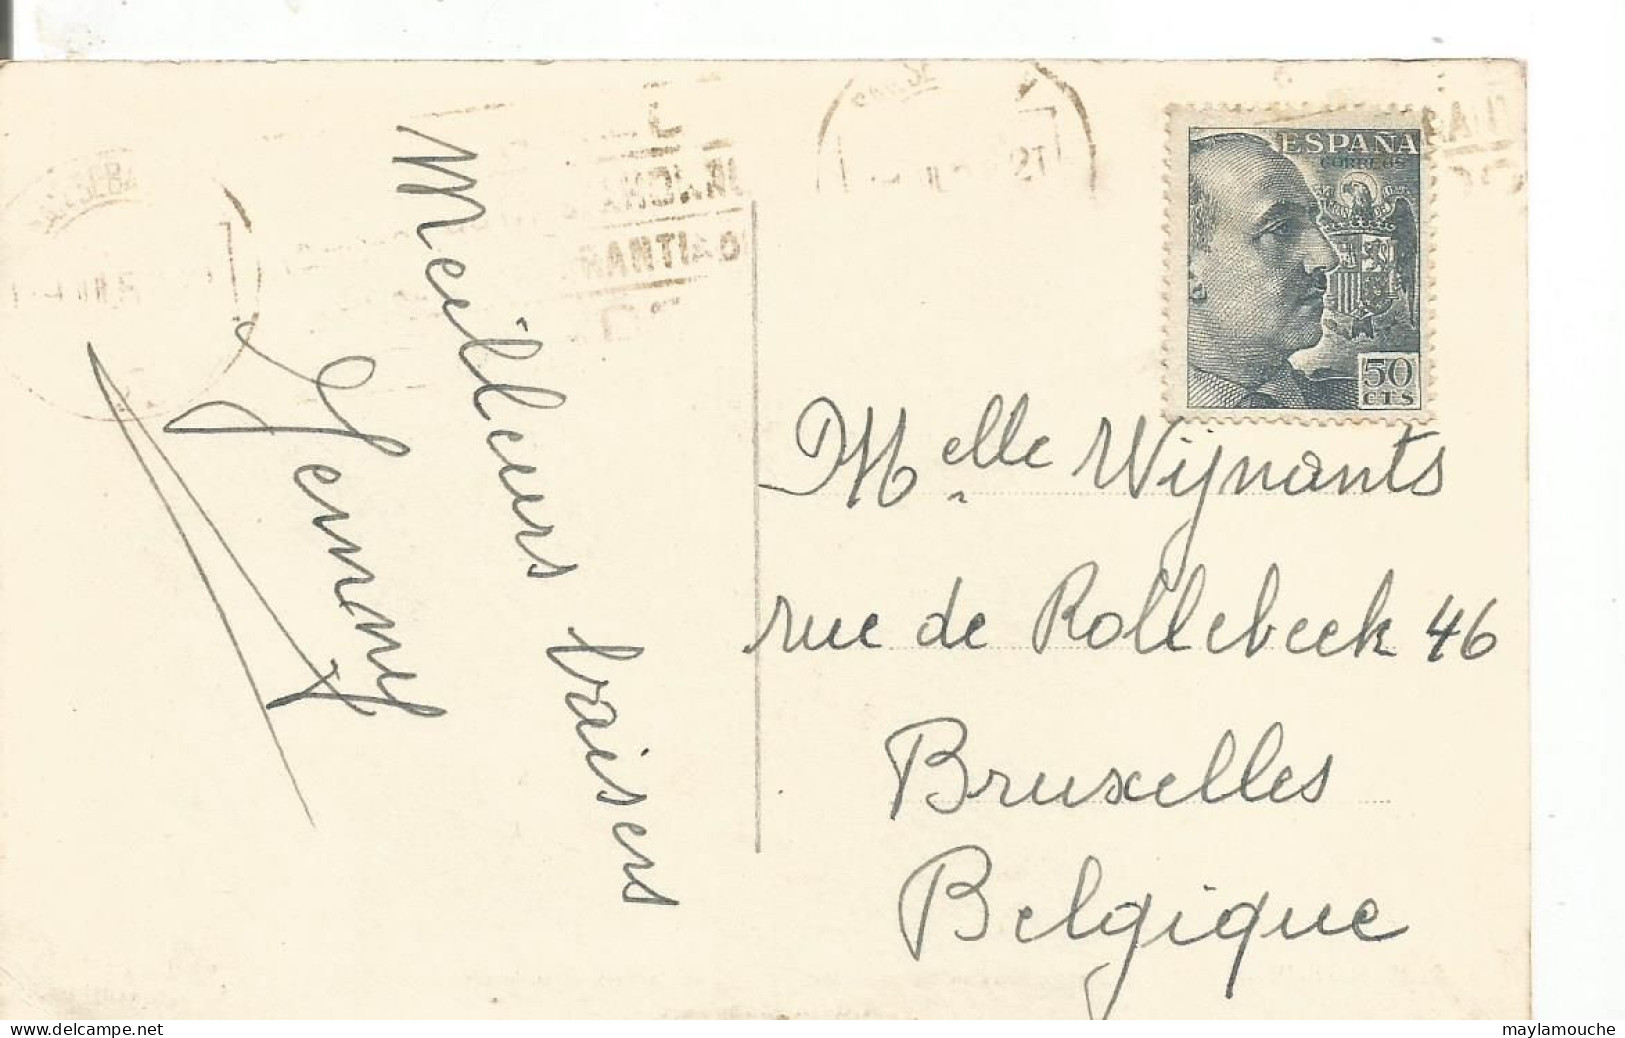 Meilleurs baisers
Jenny
ESPAÑA
CORREOS
50
CTS
Melle Wijnants
rue de Rollebeek 46
Bruxelles
Belgique
delcampe.net
maylamouche